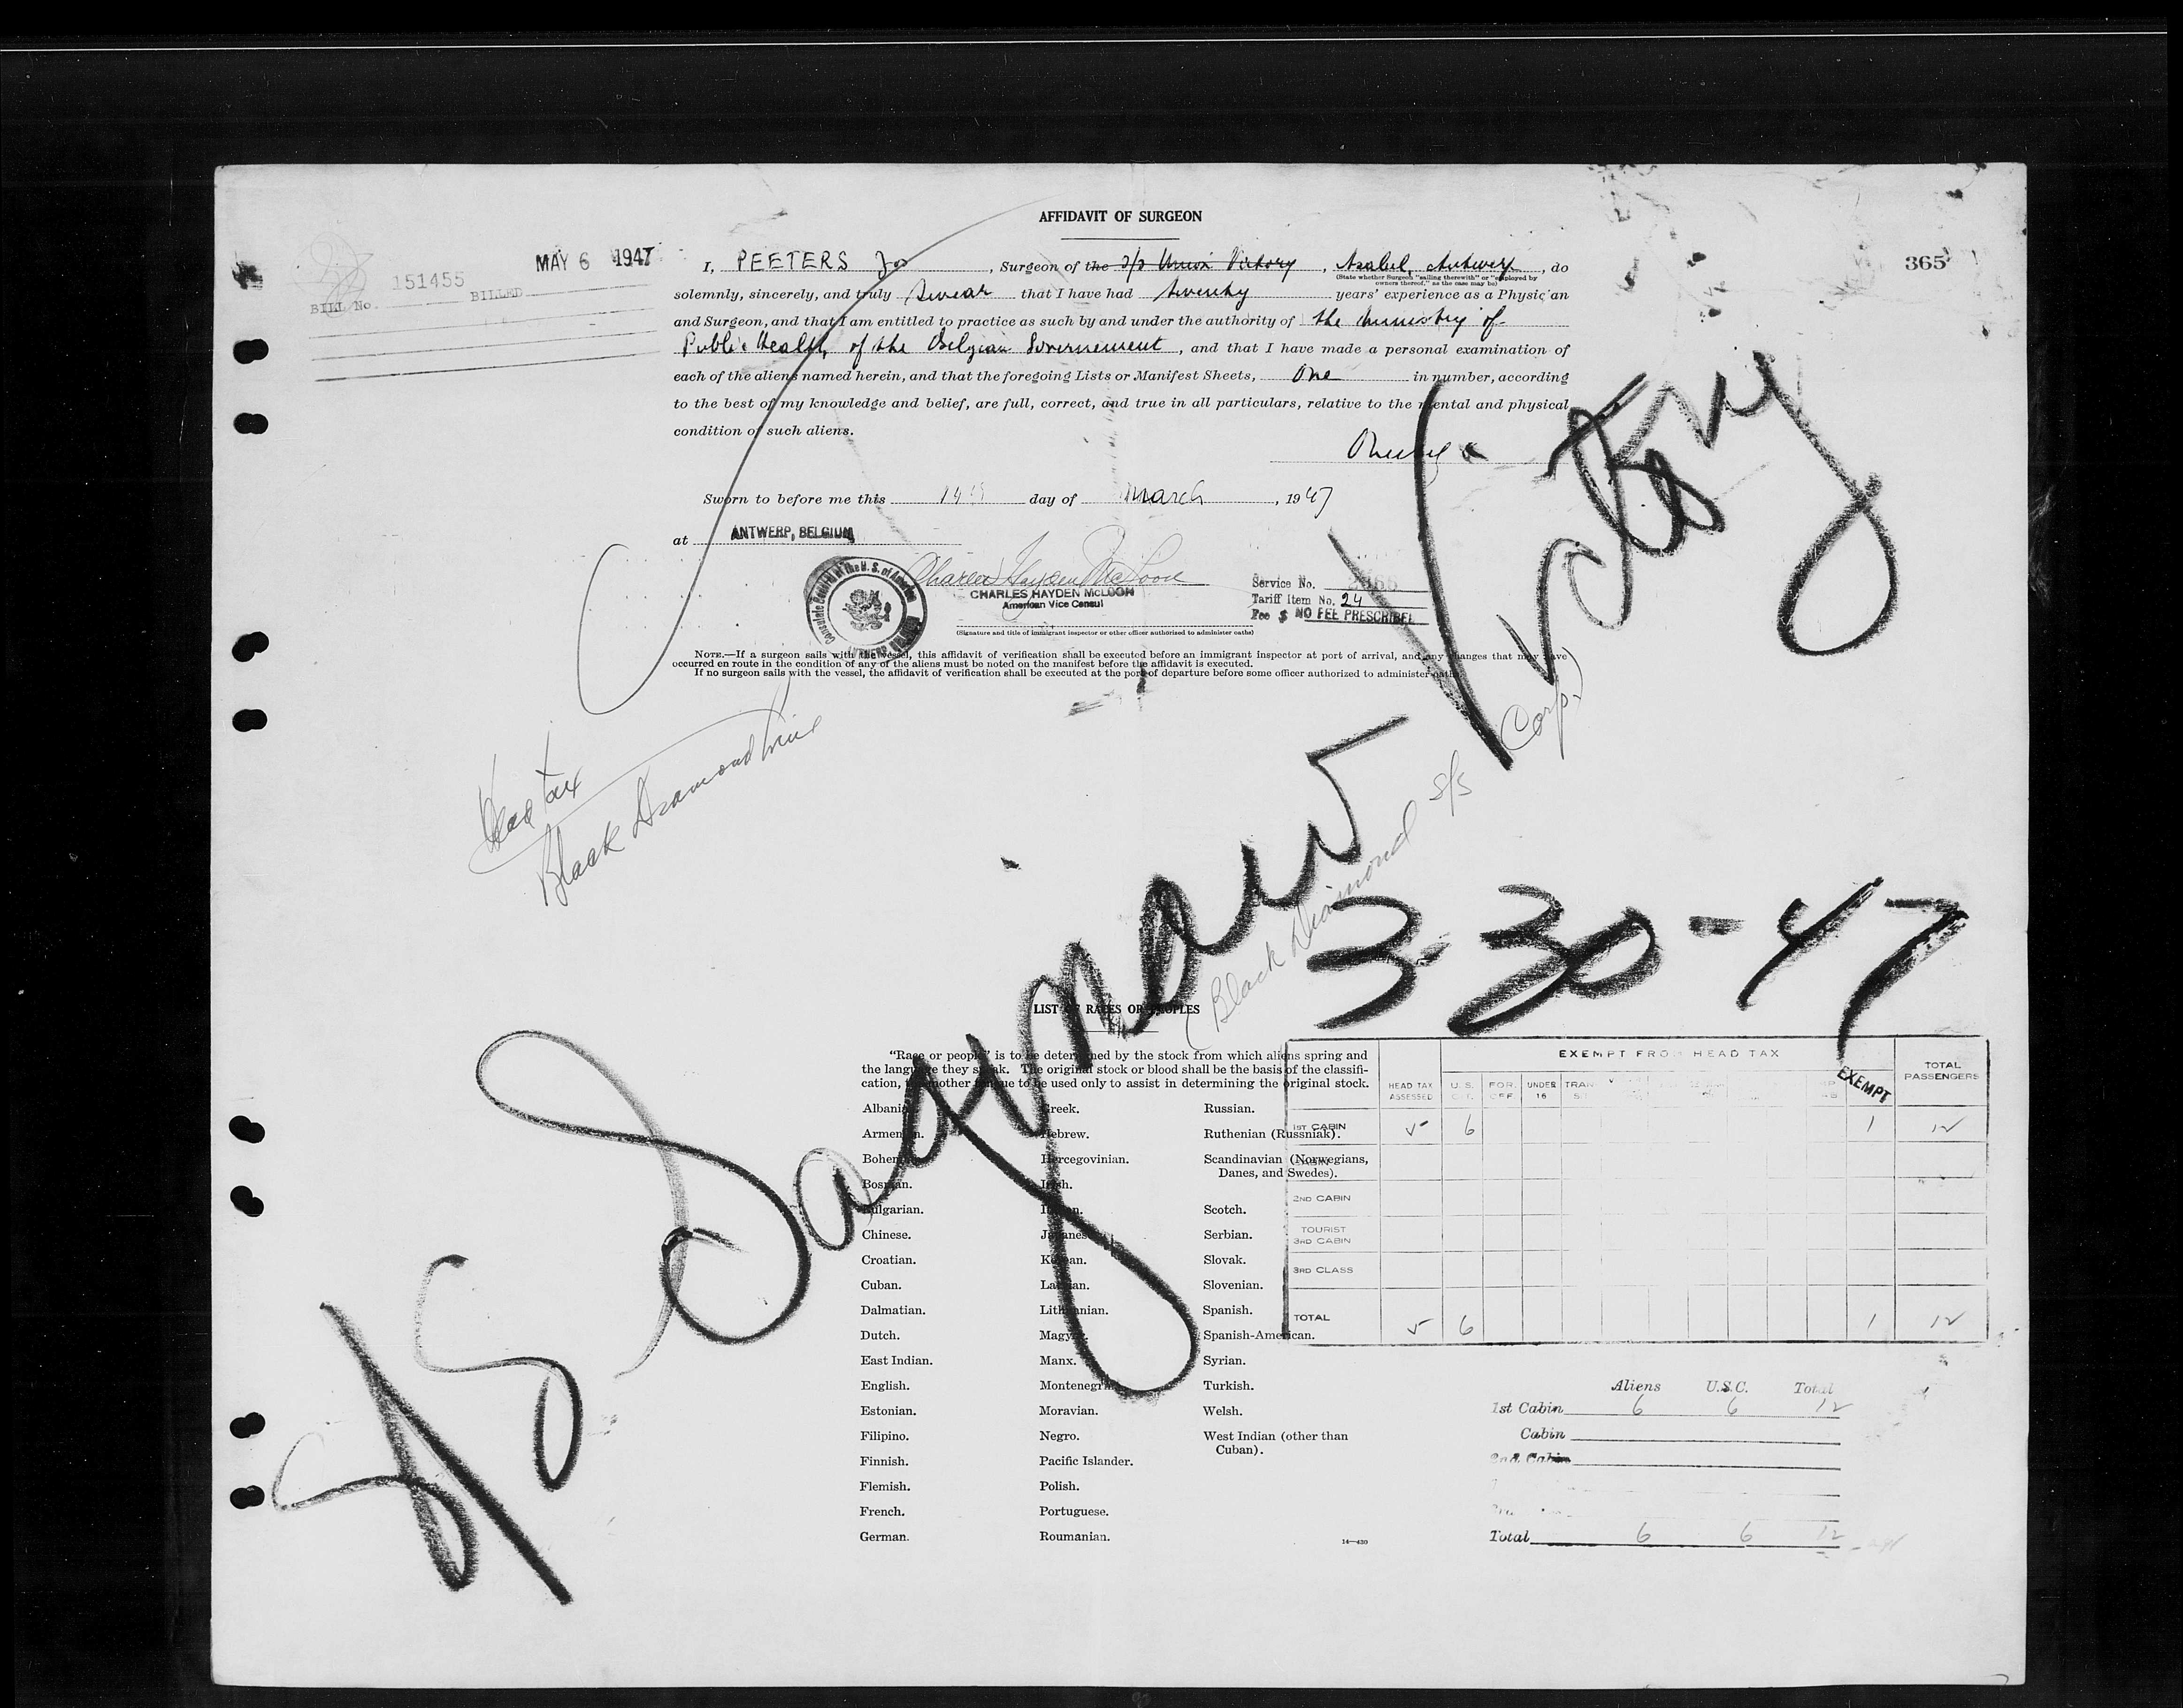 AFFIDAVIT OF SURGEON
365
MAY 6 1947
151455
BILL No. BILLED
I, PEETERS Jos, Surgeon of the s/s Union Victory, Asabel, Antwerp, do
(State whether Surgeon "sailing therewith" or "employed by
owners thereof," as the case may be)
solemnly, sincerely, and truly swear that I have had twenty years' experience as a Physician
and Surgeon, and that I am entitled to practice as such by and under the authority of the ministry of
Public Health of the Belgian Governement, and that I have made a personal examination of
each of the aliens named herein, and that the foregoing Lists or Manifest Sheets, One in number, according
to the best of my knowledge and belief, are full, correct, and true in all particulars, relative to the mental and physical
condition of such aliens.
Sworn to before me this 14th day of March, 1947
at ANTWERP, BELGIUM
Charles Hayden McLoon
CHARLES HAYDEN McLOON
American Vice Consul
Service No.
Tariff Item No. 24
Fee $ NO FEE PRESCRIBED
(Signature and title of immigrant inspector or other officer authorized to administer oaths)
NOTE.—If a surgeon sails with the vessel, this affidavit of verification shall be executed before an immigrant inspector at port of arrival, and any changes that may have
occurred en route in the condition of any of the aliens must be noted on the manifest before the affidavit is executed.
If no surgeon sails with the vessel, the affidavit of verification shall be executed at the port of departure before some officer authorized to administer oaths.
Head tax
Black Diamond Line
S/S Saginaw Victory
(Black Diamond S/S Corp.)
3-30-47
LIST OF RACES OR PEOPLES
"Race or people" is to be determined by the stock from which aliens spring and
the language they speak. The original stock or blood shall be the basis of the classifi-
cation, the mother tongue to be used only to assist in determining the original stock.
Albanian.
Armenian.
Bohemian.
Bosnian.
Bulgarian.
Chinese.
Croatian.
Cuban.
Dalmatian.
Dutch.
East Indian.
English.
Estonian.
Filipino.
Finnish.
Flemish.
French.
German.
Greek.
Hebrew.
Hercegovinian.
Irish.
Italian.
Japanese.
Korean.
Latvian.
Lithuanian.
Magyar.
Manx.
Montenegrin.
Moravian.
Negro.
Pacific Islander.
Polish.
Portuguese.
Roumanian.
Russian.
Ruthenian (Russniak).
Scandinavian (Norwegians,
Danes, and Swedes).
Scotch.
Serbian.
Slovak.
Slovenian.
Spanish.
Spanish-American.
Syrian.
Turkish.
Welsh.
West Indian (other than
Cuban).
14—430
EXEMPT FROM HEAD TAX
HEAD TAX ASSESSED U.S. CIT. FOR. OFF. UNDER 16 TRANSIT EXEMPT TOTAL PASSENGERS
1ST CABIN 5 6 1 12
CABIN
2ND CABIN
TOURIST
3RD CABIN
3RD CLASS
TOTAL 5 6 1 12
Aliens U.S.C. Total
1st Cabin 6 6 12
Cabin
2nd Cabin
Total 6 6 12